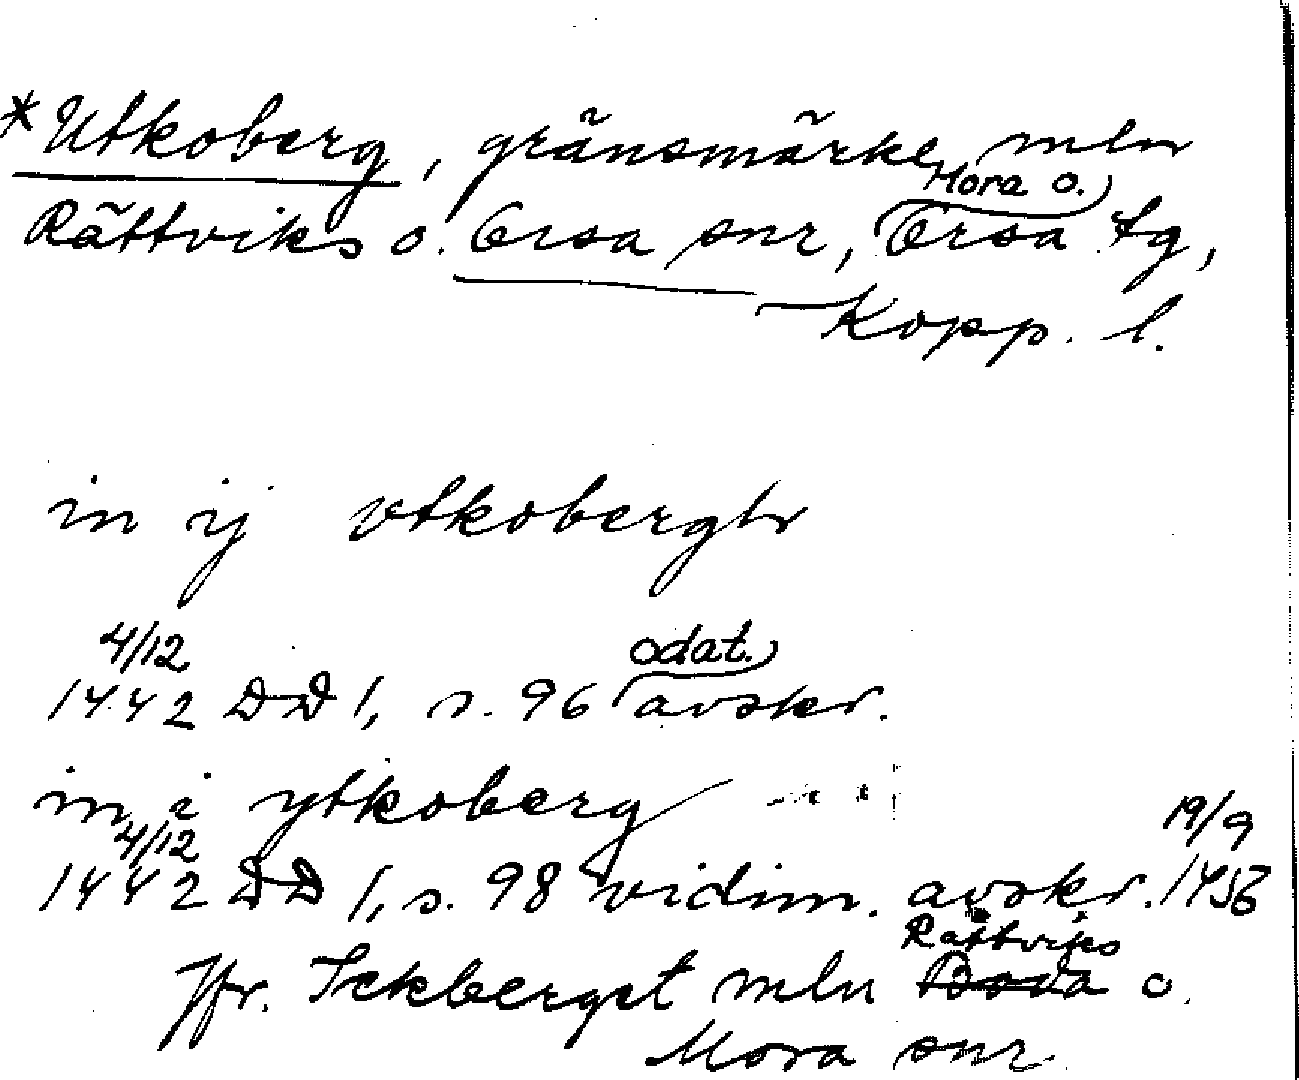 *Utkoberg, gränsmärke mln
Rättviks o. Orsa snr, Mora o. Orsa tg,
Kopp. l.
in ij vtkobergh
4/12
1442 DD 1, s. 96 odat. avskr.
in i ytkoberg
4/12 19/9
1442 DD 1, s. 98 vidim. avskr. 1456
Jfr. Ickberget mln Rättviks Boda o.
Mora snr.